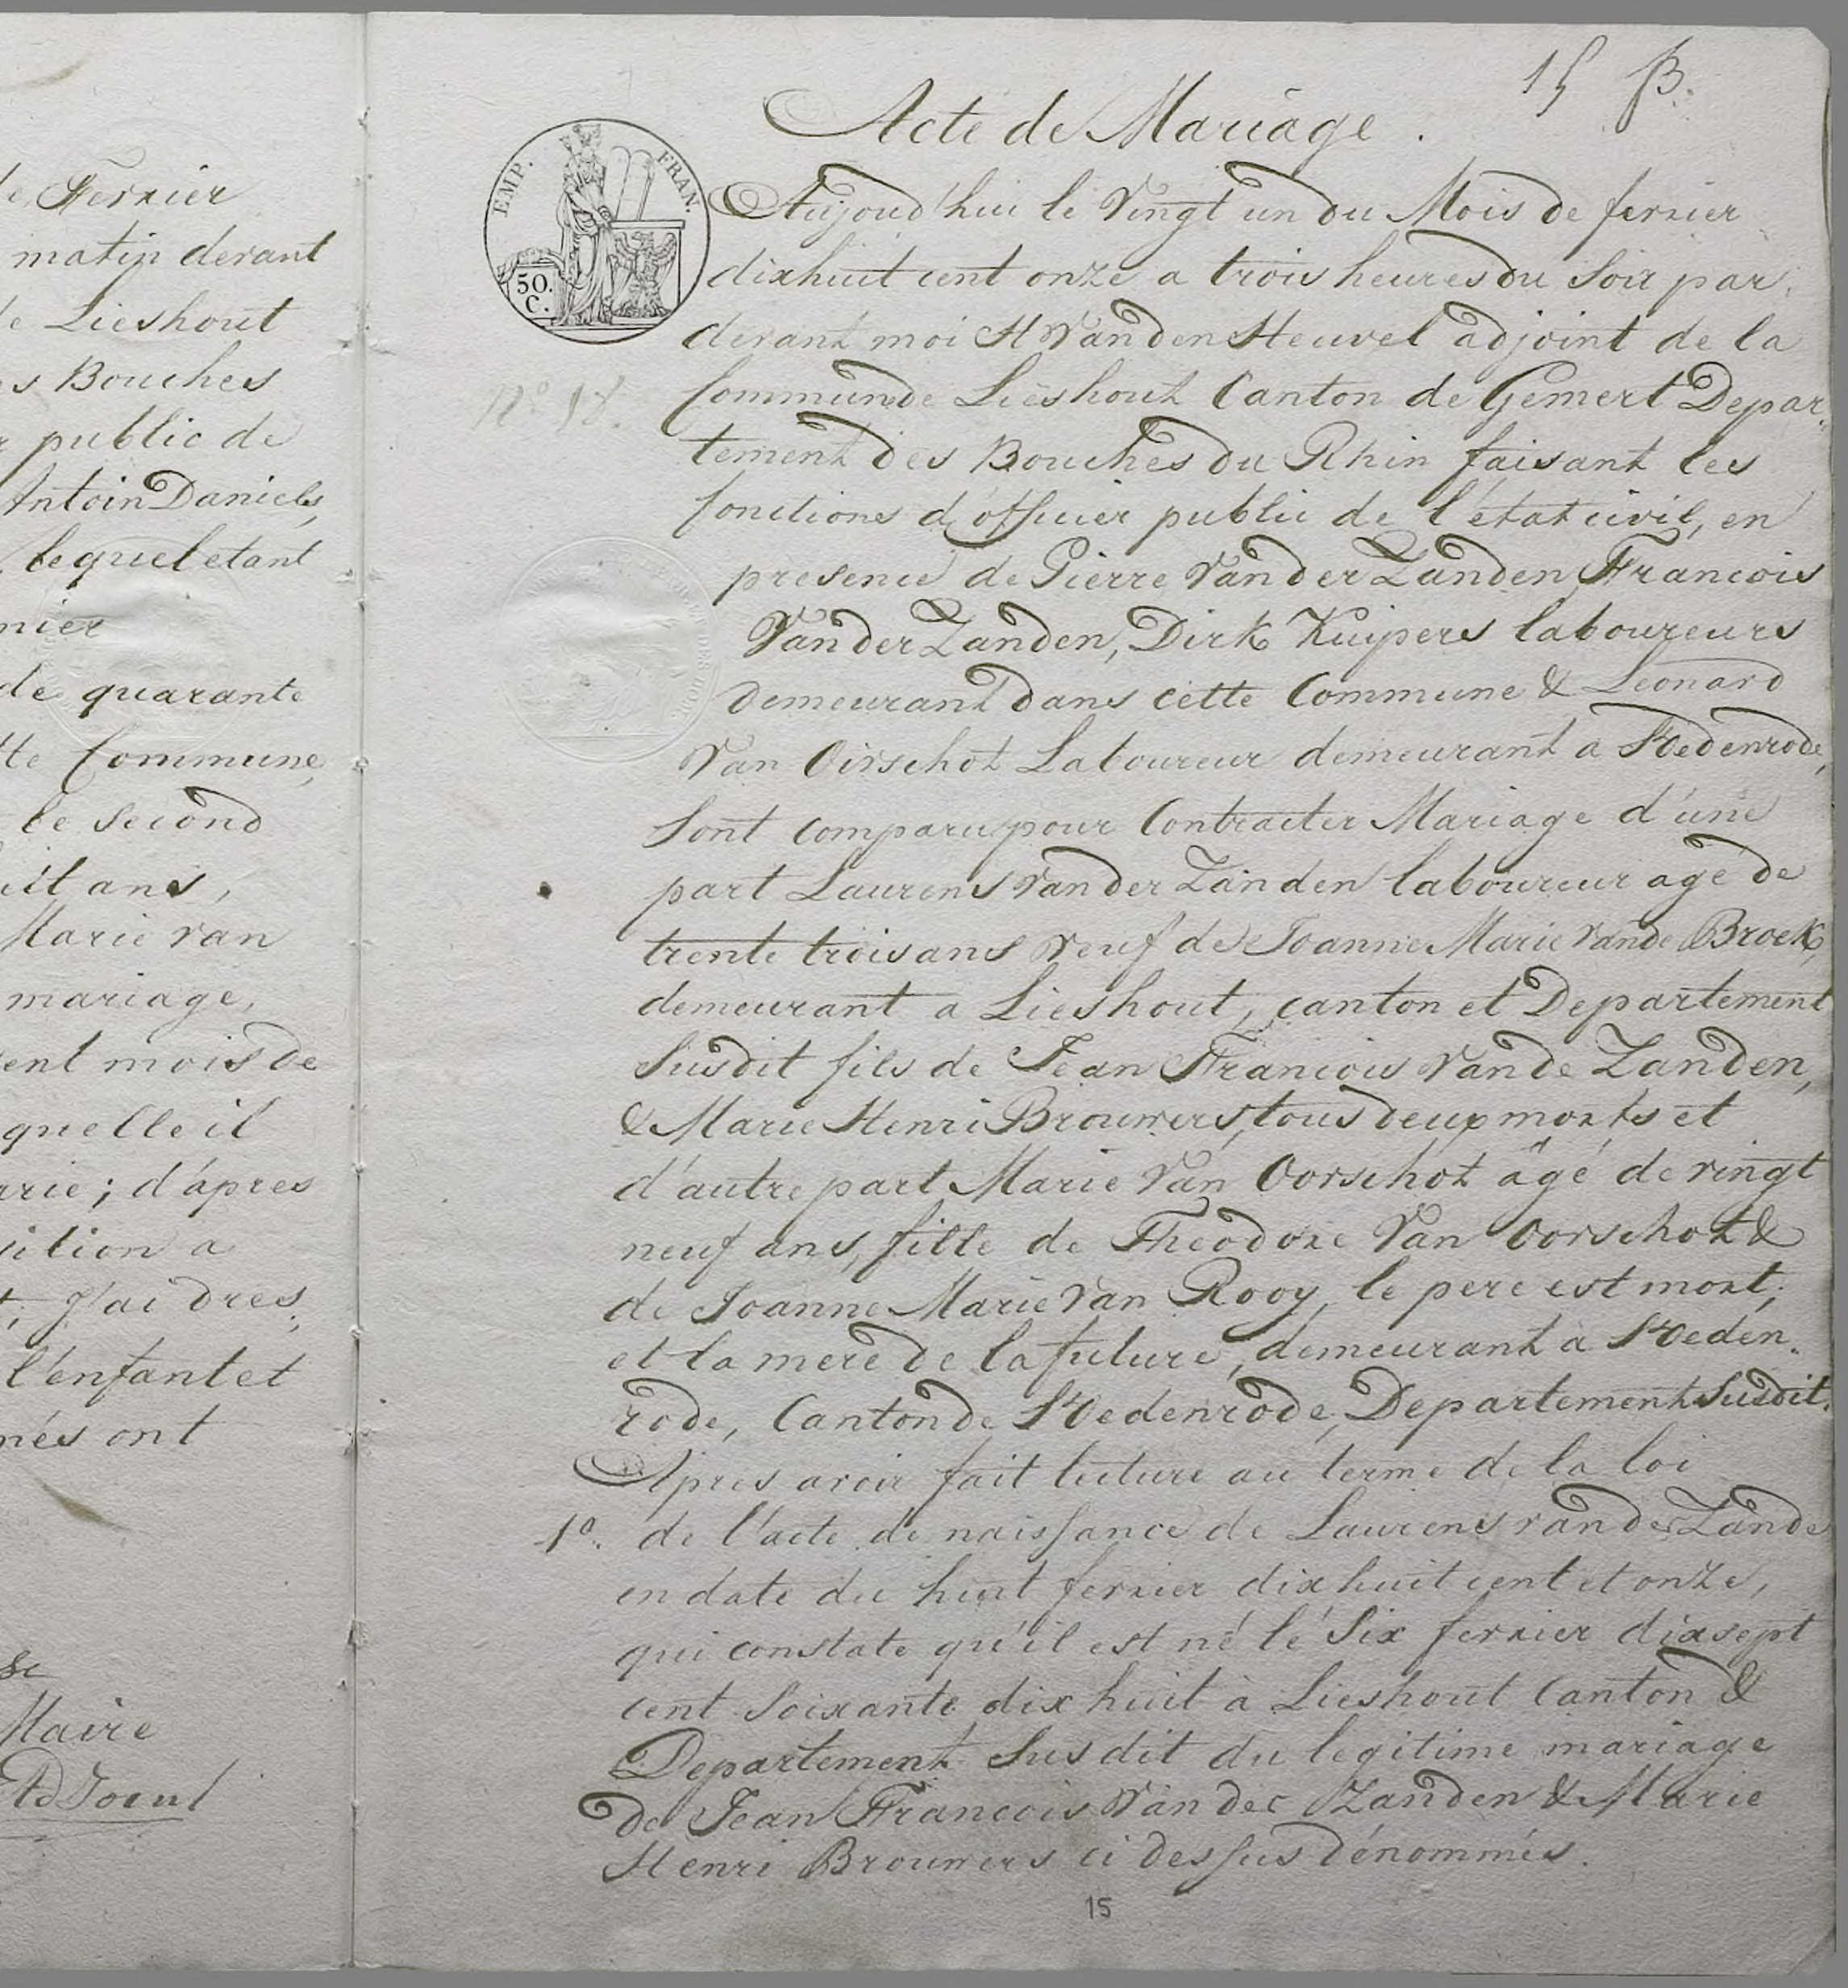 de Fevrier
matin devant
de Lieshout
Bouches
public de
Antoin Daniels,
lequel etant
nier
de quarante
Commune,
le Second
ans,
Marie van
mariage,
ent mois de
quelle il
rie; d'après
sition a
J'ai dres.
l'enfant et
més ont
Maire
15 B.
Acte de Mariage.
EMP. FRAN.
50.
C.
Aujoud'hui le Vingt un du Mois de fevrier
dixhuit cent onze a trois heures du Soir par.
devant moi H Van den Heuvel adjoint de la
No 18.
Commun de Lieshout Canton de Gemert Depar.
tement des Bouches du Rhin faisant les
fonctions d'officier public de l'état civil, en
presence de Pierre Van der Zanden Francois
Van der Zanden, Dirk Kuijpers laboureurs
demeurant dans cette Commune & Leonard
Van Oirschot Laboureur demeurant a StOedenrode,
Sont comparu pour Contracter Mariage d'une
part Laurens Van der Zanden laboureur agé de
trente trois ans Veuf de Joanne Marie Vande Broek,
demeurant a Lieshout, canton et Departement
Susdit fils de Jean Francois Van de Zanden,
& Marie Henri Brouwers, tous deux morts et
d'autre part Marie Van Oorschot âgé de vingt
neuf ans, fille de Theodore Van Oorschot &
de Joanne Marie Van Rooy, le pere est mort;
et la mere de la future, demeurant à StOeden.
rode, Canton de StOedenrode, Departement Susdit.
Apres avoir fait lecture au terme de la loi
1o. de l'acte de naissance de Laurens van der Zande
en date du huit fevrier dixhuit cent et onze,
qui constate qu'il est né lé Six fevrier dixsept
cent Soixante dix huit à Lieshout Canton &
Departement Susdit du legitime mariage
de Jean Francois Van der Zanden & Marie
Henri Brouwers ci dessus dénommés.
15